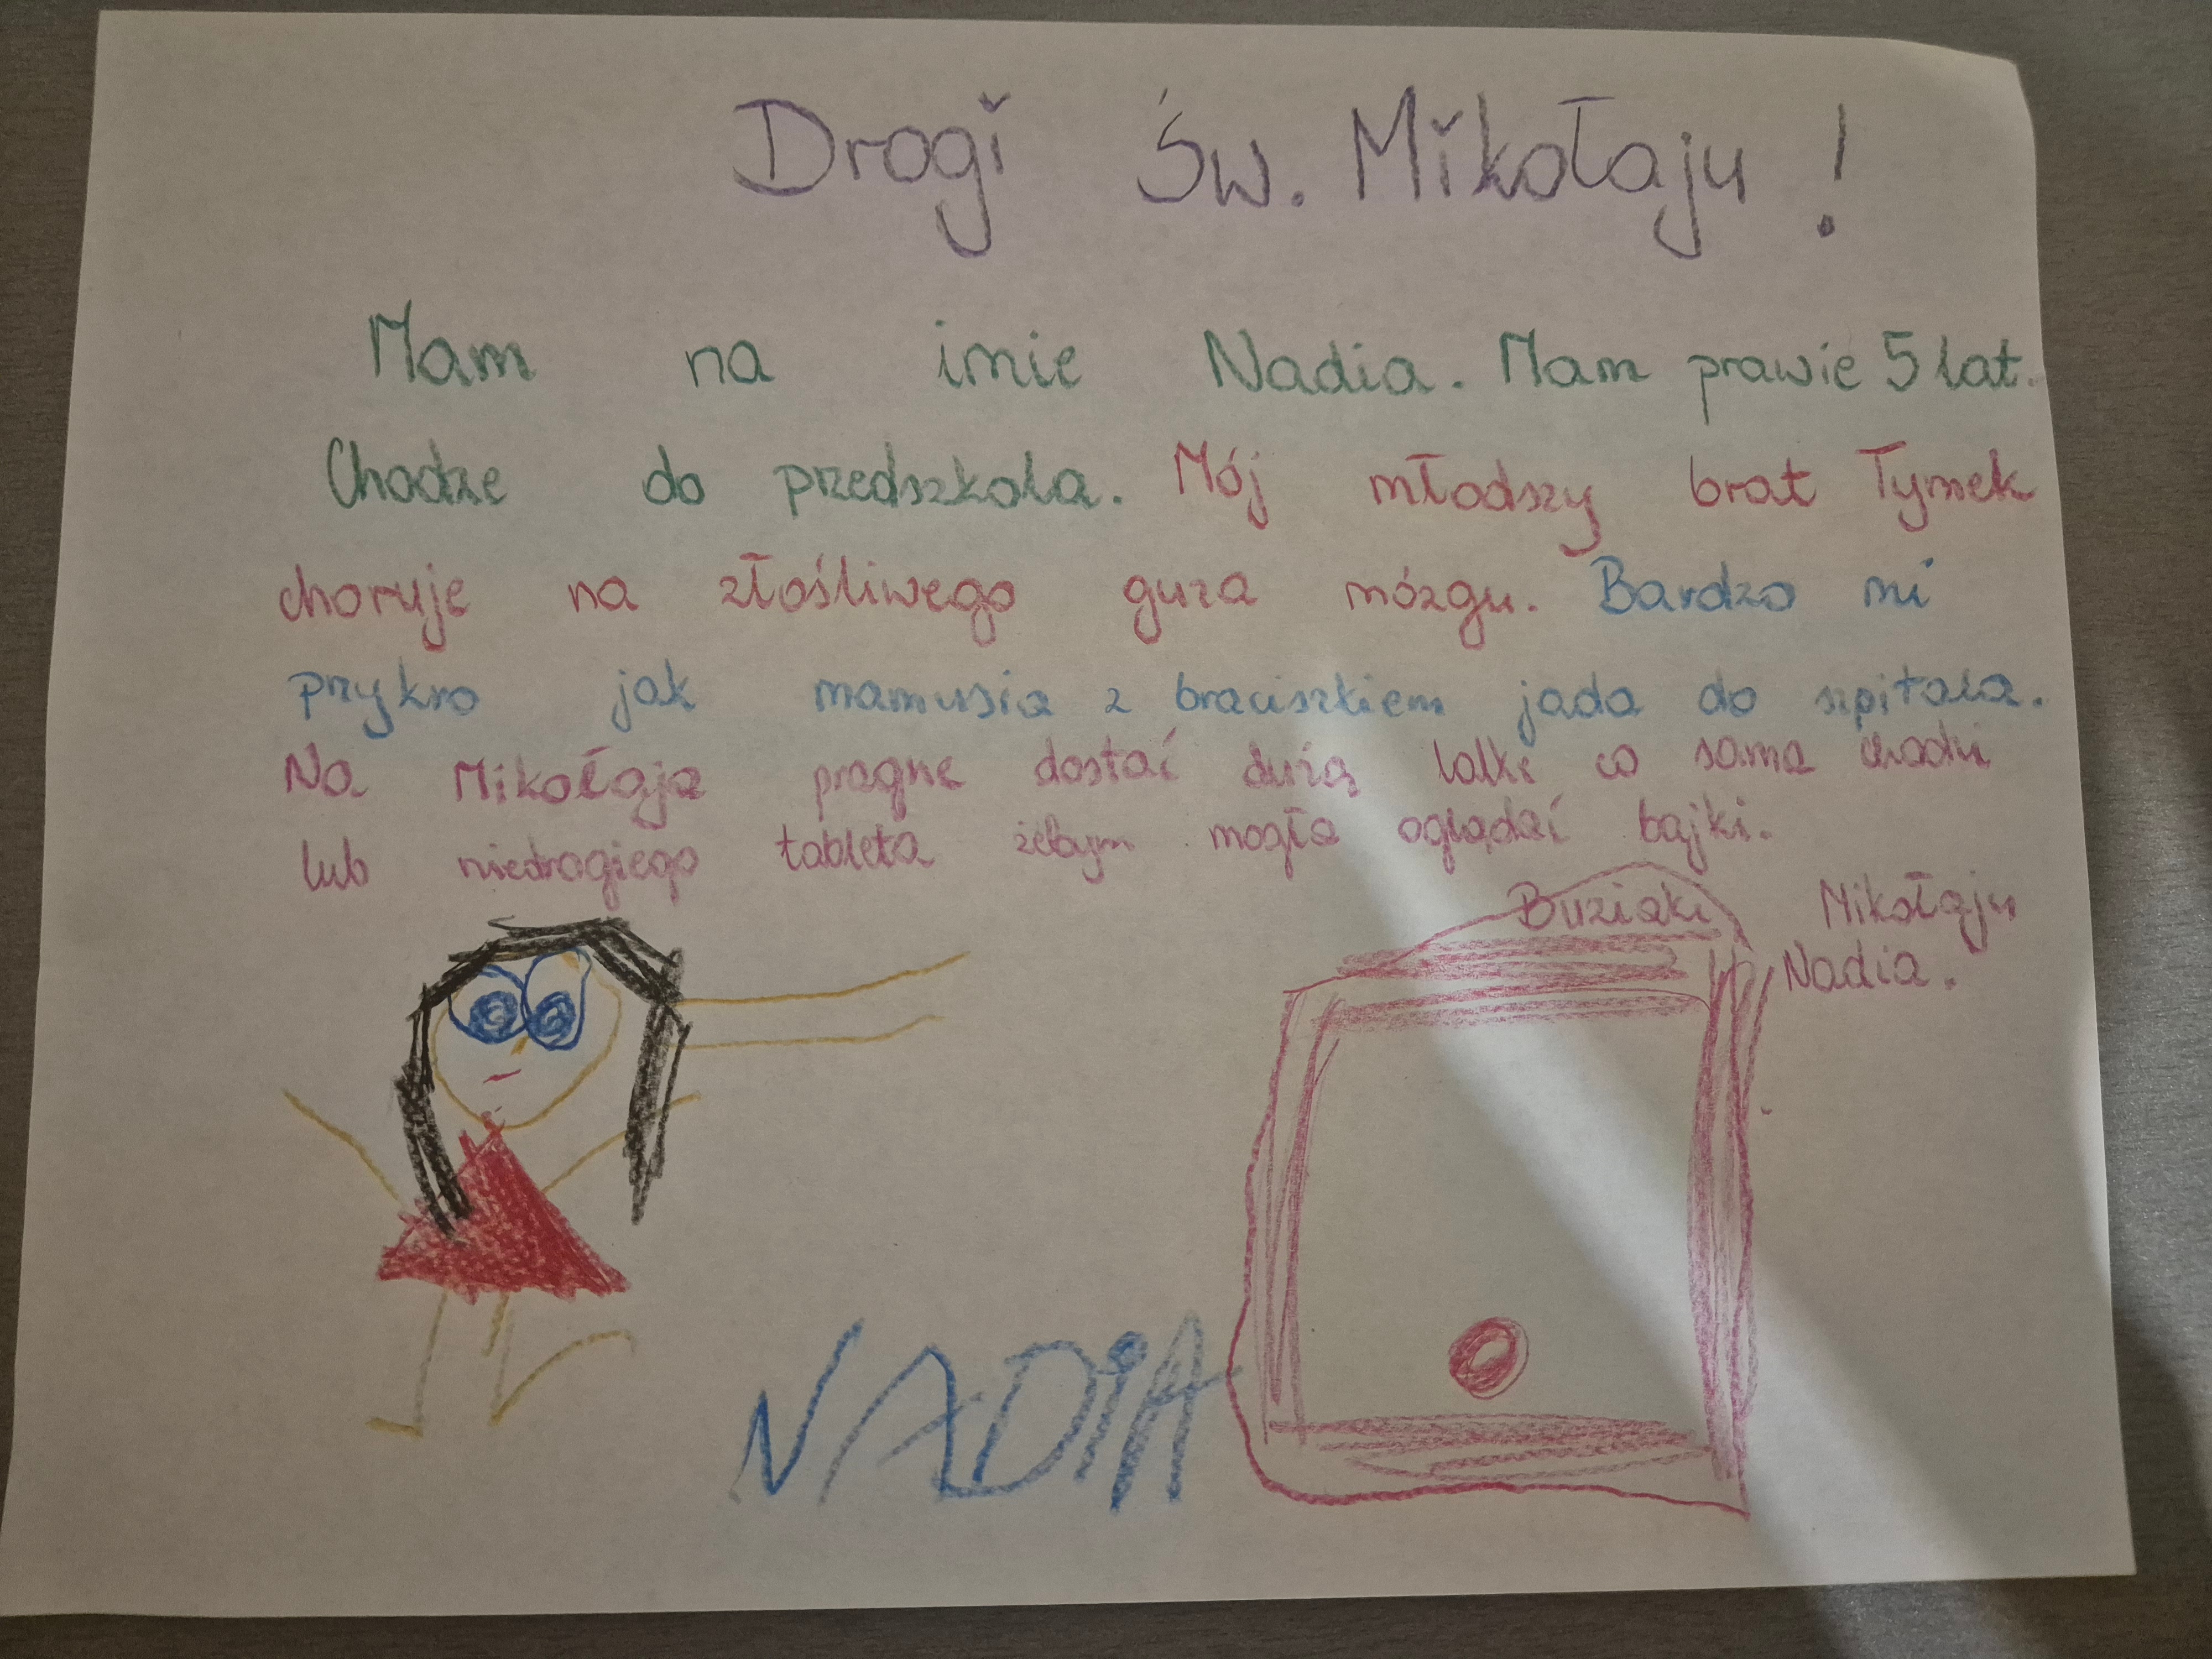 Drogi Św. Mikołaju !
Mam na imie Nadia. Mam prawie 5 lat.
Chodze do przedszkola. Mój młodszy brat Tymek
choruje na złośliwego guza mózgu. Bardzo mi
przykro jak mamusia z braciszkiem jada do szpitala.
Na Mikołaja pragne dostać dużą lalke co sama chodzi
lub niedrogiego tableta żebym mogła oglądać bajki.
Buziaki Mikołaju
Nadia.
NADiA